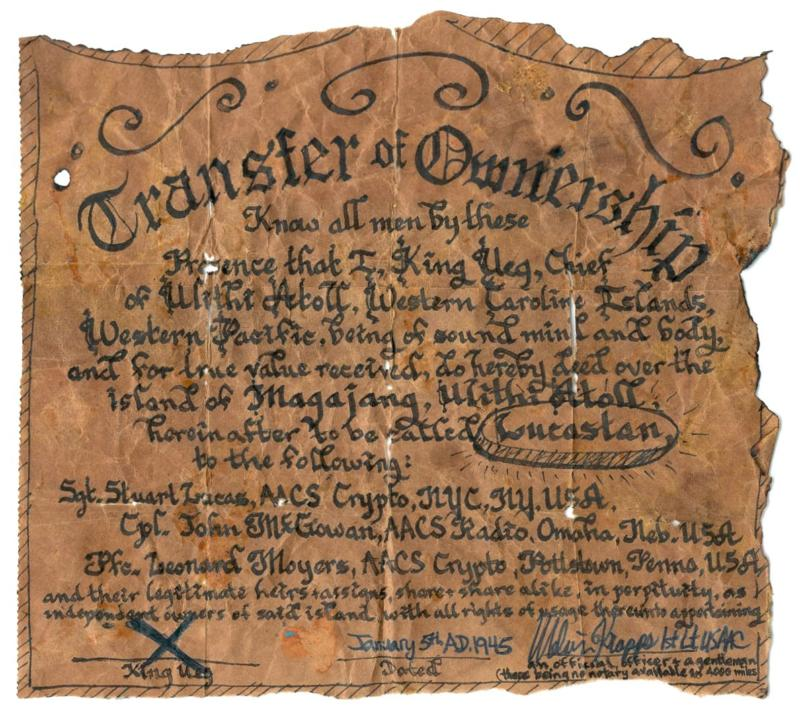 Transfer of Ownership
Know all men by these
Presence that I, King Ueg, Chief
of Ulithi Atoll, Western Caroline Islands,
Western Pacific, being of sound mind and body,
and for true value received, do hereby deed over the
island of Magajang, Ulithi Atoll,
hereinafter to be called Lucastan,
to the following:
Sgt. Stuart Lucas, AACS Crypto, NYC, NY. USA.
Cpl. John McGowan, AACS Radio, Omaha, Neb. USA
Pfc. Leonard Moyers, AACS Crypto, Pottstown, Penna, USA
and their legitimate heirs + assigns, share + share alike, in perpituity, as
independent owners of said island, with all rights of usage thereunto appertaining
X
January 5th AD. 1945
1st Lt USAAC
King Ueg
Dated
an official officer + a gentleman
(there being no notary available in 4000 miles)